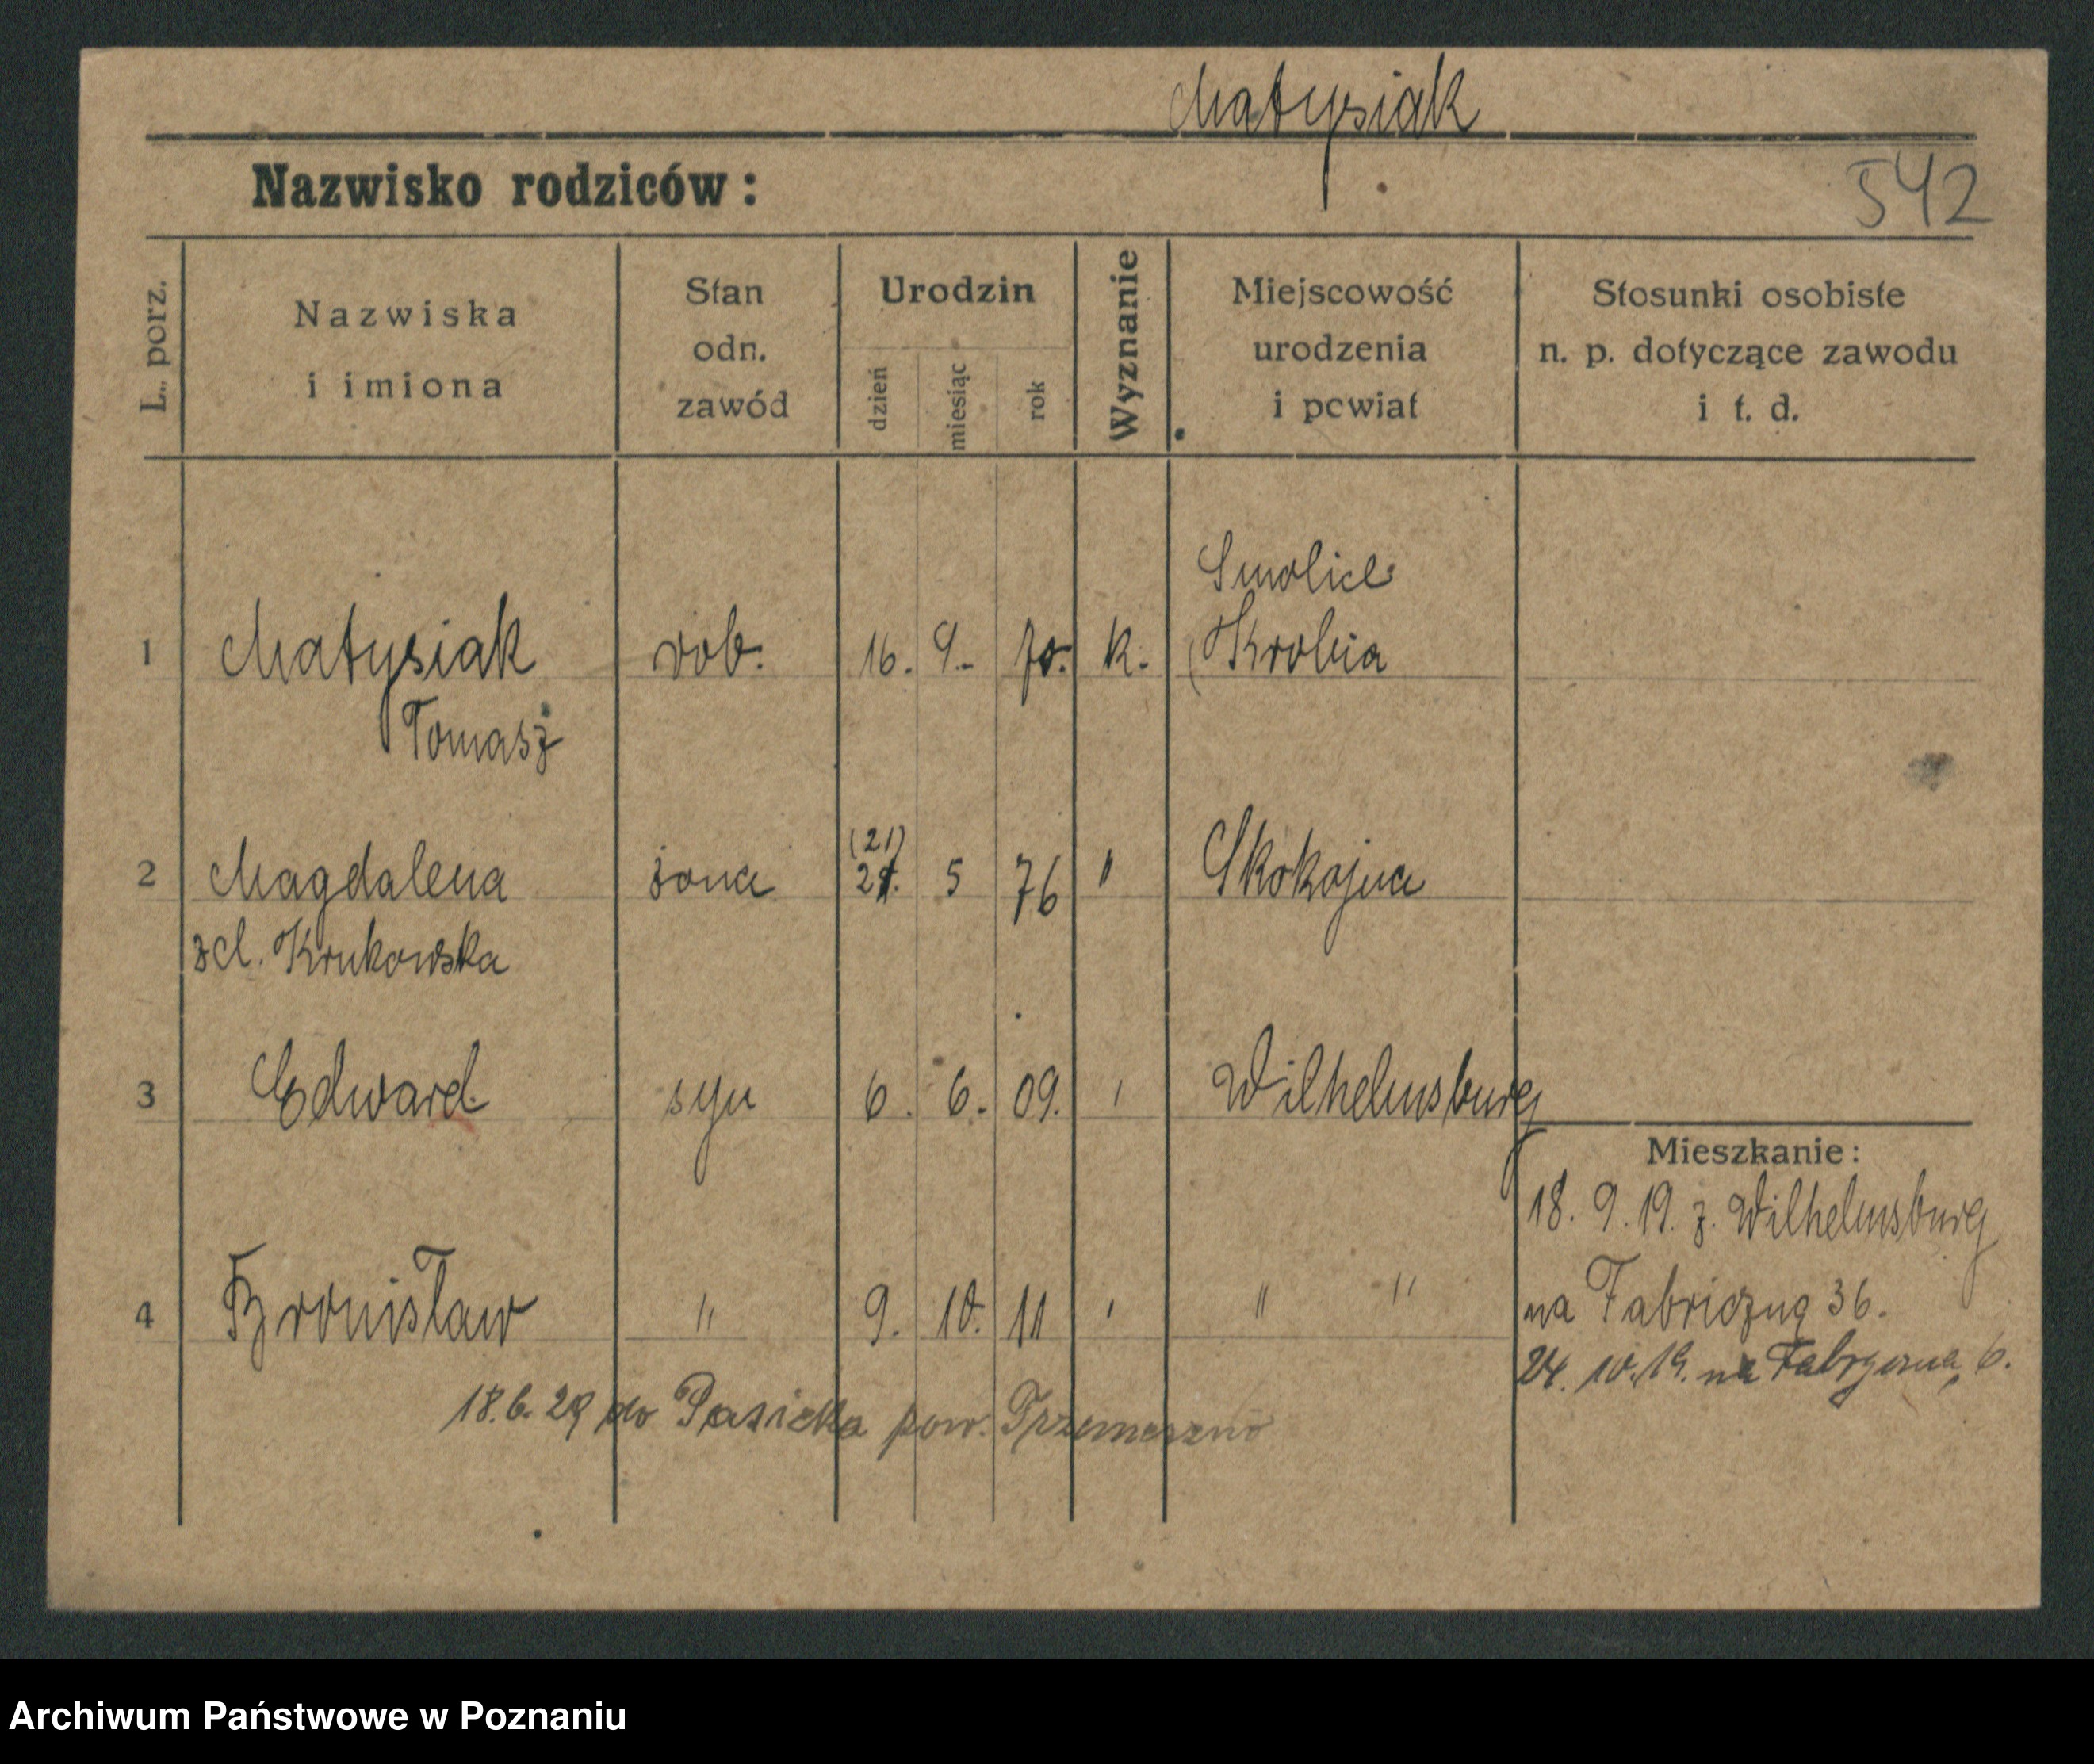 Matysiak
Nazwisko rodziców:
542
L. porz.
Nazwiska
i imiona
Stan
odn.
zawód
Urodzin
dzień
miesiąc
rok
Wyznanie
Miejscowość
urodzenia
i powiat
Stosunki osobiste
n. p. dotyczące zawodu
i t. d.
Smolice
1 Matysiak rob. 16. 9. 70. k. (Krobia
Tomasz
(21)
2 Magdalena żona 5 76 " Skokojna
zd. Krukowska
3 Edward syn 6. 6. 09. ' Wilhelmsburg
Mieszkanie:
18. 9. 19. z. Wilhelmsburg
4 Bronisław " 9. 10. 11 ' " "
na Fabriczną 36.
24. 10. 19. na 6.
18. 6. 29 do Pasieka pow. Trzemeszno
Archiwum Państwowe w Poznaniu